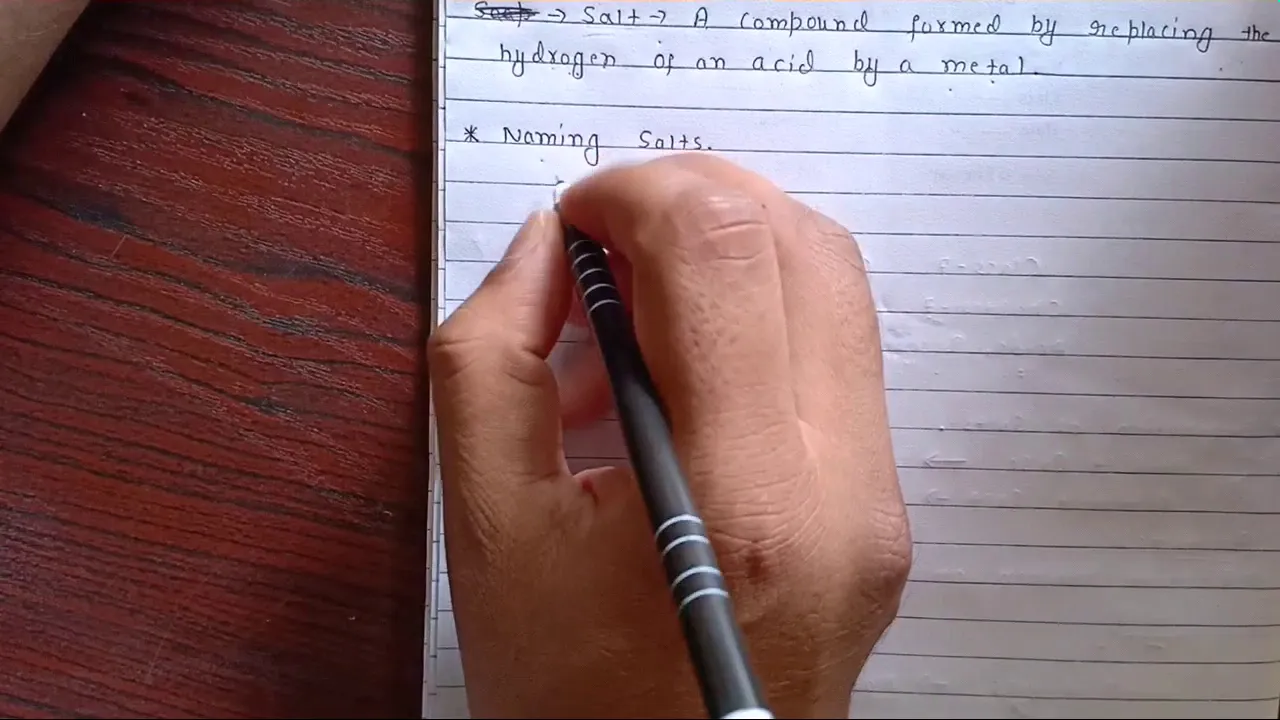 → Salt → A compound formed by replacing the
hydrogen of an acid by a metal.
* Naming Salts.